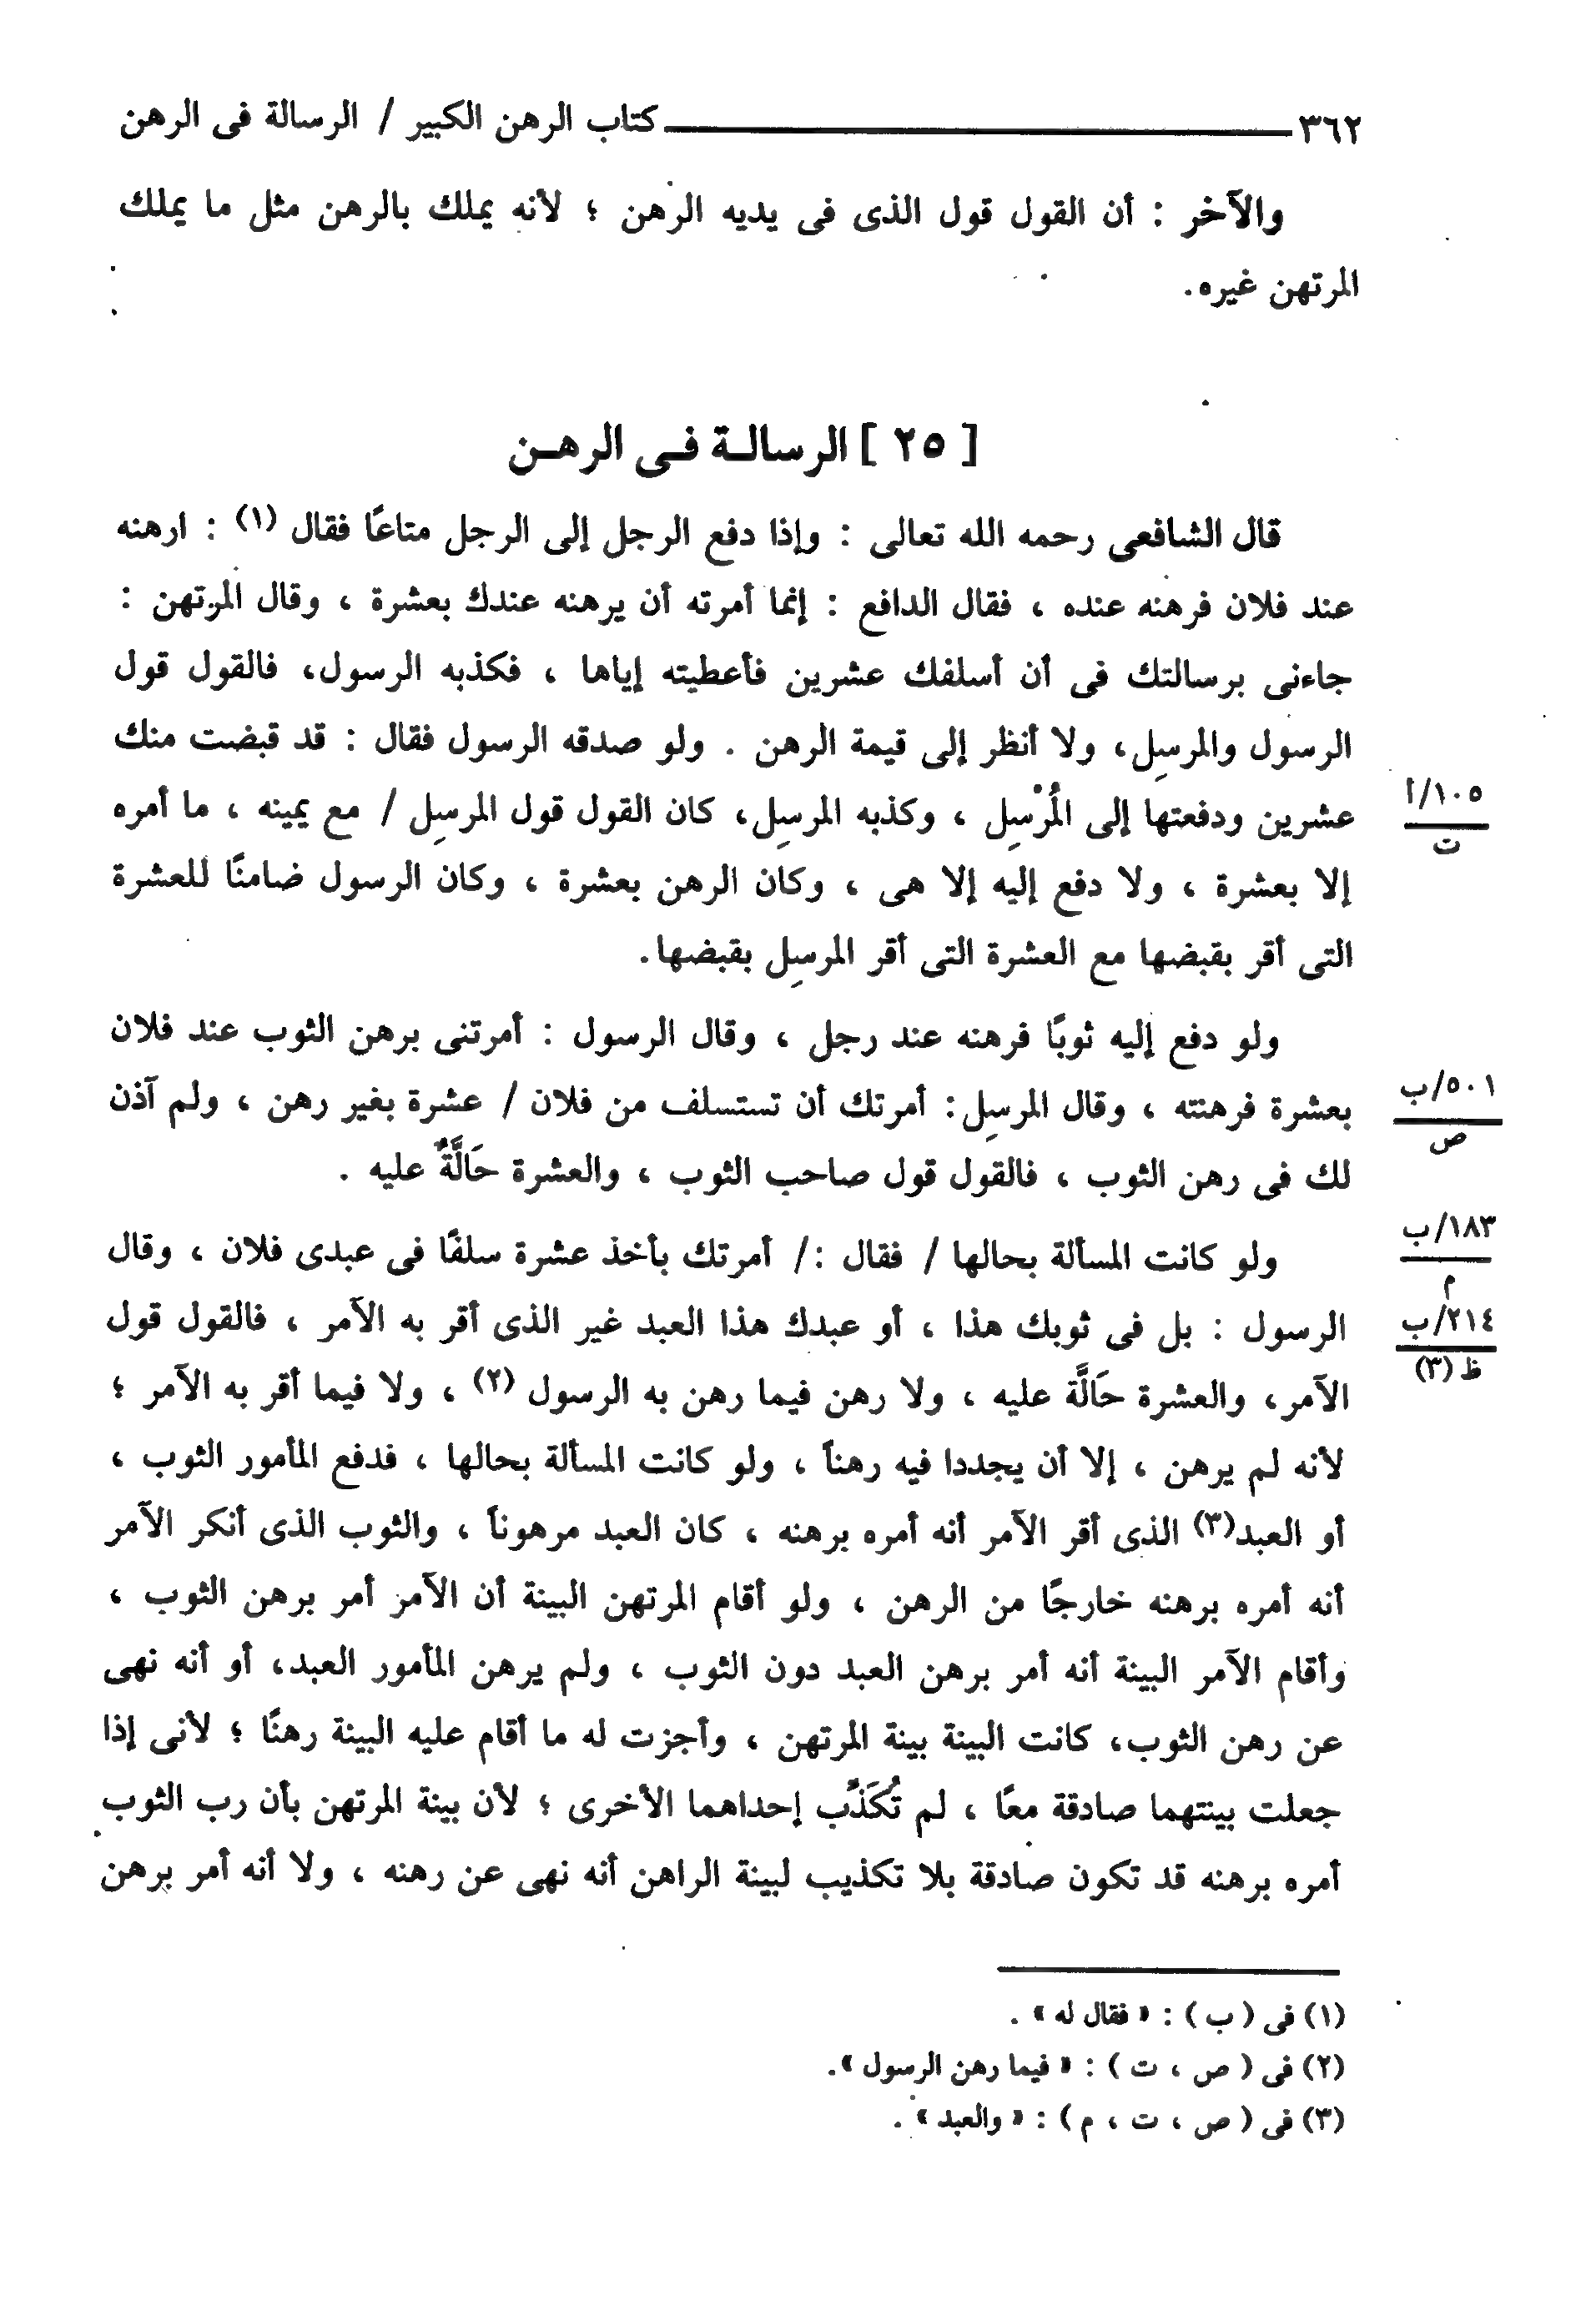 ٣٦٢ كتاب الرهن الكبير / الرسالة فى الرهن
والآخر : أن القول قول الذى فى يديه الرهن ؛ لأنه يملك بالرهن مثل ما يملك
المرتهن غيره.
[ ٢٥ ] الرسالـة فـى الرهـن
قال الشافعى رحمه الله تعالى : وإذا دفع الرجل إلى الرجل متاعًا فقال (١) : ارهنه
عند فلان فرهنه عنده ، فقال الدافع : إنما أمرته أن يرهنه عندك بعشرة ، وقال المرتهن :
جاءنى برسالتك فى أن أسلفك عشرين فأعطيته إياها ، فكذبه الرسول، فالقول قول
الرسول والمرسِل، ولا أنظر إلى قيمة الرهن . ولو صدقه الرسول فقال : قد قبضت منك
عشرين ودفعتها إلى المُرْسِل ، وكذبه المرسِل، كان القول قول المرسِل / مع يمينه ، ما أمره
١٠٥/أ
ت
إلا بعشرة ، ولا دفع إليه إلا هى ، وكان الرهن بعشرة ، وكان الرسول ضامنًا للعشرة
التى أقر بقبضها مع العشرة التى أقر المرسِل بقبضها.
ولو دفع إليه ثوبًا فرهنه عند رجل ، وقال الرسول : أمرتنى برهن الثوب عند فلان
بعشرة فرهنته ، وقال المرسِل: أمرتك أن تستسلف من فلان / عشرة بغير رهن ، ولم آذن
٥٠١/ب
ص
لك فى رهن الثوب ، فالقول قول صاحب الثوب ، والعشرة حَالَّةٌ عليه .
ولو كانت المسألة بحالها / فقال :/ أمرتك بأخذ عشرة سلفًا فى عبدى فلان ، وقال
١٨٣/ب
م
الرسول : بل فى ثوبك هذا ، أو عبدك هذا العبد غير الذى أقر به الآمر ، فالقول قول
٢١٤/ب
ظ (٣)
الآمر، والعشرة حَالَّة عليه ، ولا رهن فيما رهن به الرسول (٢) ، ولا فيما أقر به الآمر ؛
لأنه لم يرهن ، إلا أن يجددا فيه رهناً ، ولو كانت المسألة بحالها ، فدفع المأمور الثوب ،
أو العبد(٣) الذى أقر الآمر أنه أمره برهنه ، كان العبد مرهوناً ، والثوب الذى أنكر الآمر
أنه أمره برهنه خارجًا من الرهن ، ولو أقام المرتهن البينة أن الآمر أمر برهن الثوب ،
وأقام الآمر البينة أنه أمر برهن العبد دون الثوب ، ولم يرهن المأمور العبد، أو أنه نهى
عن رهن الثوب، كانت البينة بينة المرتهن ، وأجزت له ما أقام عليه البينة رهنًا ؛ لأنى إذا
جعلت بينتهما صادقة معًا ، لم تُكَذِّب إحداهما الأخرى ؛ لأن بينة المرتهن بأن رب الثوب
أمره برهنه قد تكون صادقة بلا تكذيب لبينة الراهن أنه نهى عن رهنه ، ولا أنه أمر برهن
(١) فى ( ب ) : « فقال له » .
(٢) فى ( ص ، ت ) : « فيما رهن الرسول ».
(٣) فى ( ص ، ت ، م ) : « والعبد » .